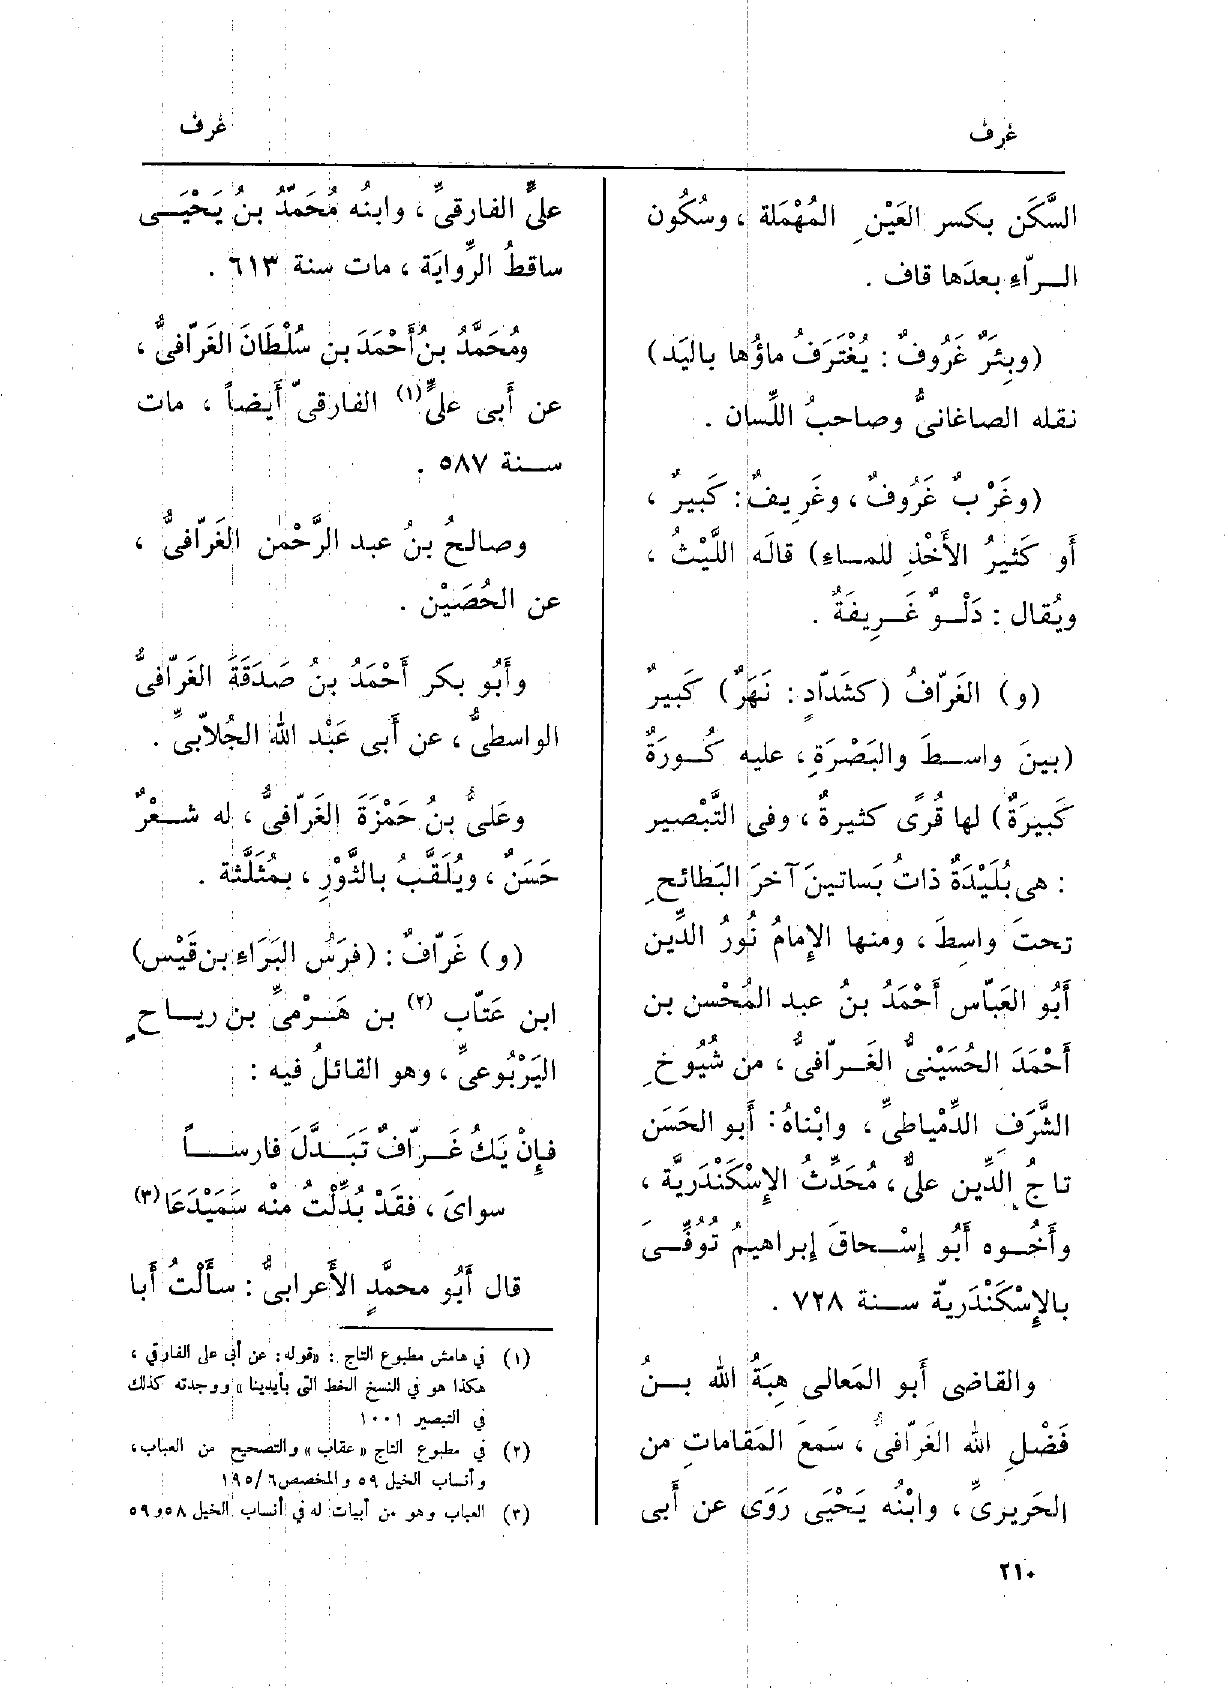 غرف
غرف
السَّكَن بكسر العَيْنِ المُهْمَلة ، وسُكُون
الــرّاءِ بعدَها قاف .
(وبِئرٌ غَرُوفٌ : يُغْتَرَفُ ماؤُها باليَد)
نقله الصاغانىُّ وصاحبُ اللِّسان .
(وغَرْبٌ غَرُوفٌ ، وغَرِيفٌ : كَبيرٌ ،
أو كَثيرُ الأَخْذِ للمــاءِ) قالَه اللَّيْثُ ،
ويُقال : دَلْــوٌ غَــرِيفَةٌ .
(و) الغَرّافُ (كشَدّادٍ : نَهَرٌ) كَبيرٌ
(بينَ واســطَ والبَصْرَةِ ، عليه كُــورَةٌ
كَبيرَةٌ) لها قُرًى كثيرةٌ ، وفى التَّبْصير
: هى بُلَيْدَةٌ ذاتُ بَساتينَ آخرَ البَطائحِ
تحتَ واسِطَ ، ومنها الإمامُ نُورُ الدِّين
أَبُو العَبّاس أَحْمَدُ بنُ عبد المُحْسن بن
أَحْمَدَ الحُسَيْنىُّ الغَــرّافىُّ ، من شُيُوخِ
الشَّرَفِ الدِّمْياطىِّ ، وابْناهُ : أَبو الحَسَن
تاجُ الدِّين علىٌّ ، مُحَدِّثُ الإِسْكَنْدَرِيَّة ،
وأَخُــوه أَبُو إِسْــحاقَ إِبراهيمُ تُوُفِّــىَ
بالإِسْكَنْدَرِيّة ســنة ٧٢٨ .
والقاضى أَبو المَعالى هِبَةُ الله بــنُ
فَضْلِ الله الغَرّافىُّ ، سَمعَ المَقامات من
الحَريرىِّ ، وابْنُه يَحْيَى رَوَى عن أَبى
علىٍّ الفارقىِّ ، وابنُه مُحَمّدُ بنُ يَحْيَــى
ساقطُ الرِّوايَة ، مات سنة ٦١٣ .
ومُحَمَّدُ بنُ أَحْمَدَ بن سُلْطَانَ الغَرّافىُّ ،
عن أَبى علىٍّ (١) الفارقىّ أَيضاً ، مات
ســنة ٥٨٧ .
وصالحُ بنُ عبد الرَّحْمٰن الغَرّافىُّ ،
عن الحُصَيْن .
وأَبُو بكر أَحْمَدُ بنُ صَدَقَةَ الغَرّافىُّ
الواسطىُّ ، عن أَبى عَبْد الله الجُلاّبىِّ .
وعَلىُّ بنُ حَمْزَةَ الغَرّافىُّ ، له شــعْرٌ
حَسَنٌ ، ويُلَقَّبُ بالثَّوْرِ ، بمُثَلَّثة .
(و) غَرّافٌ : (فرَسُ البَرَاءِ بن قَيْس)
ابن عَتّاب (٢) بن هَــرْمىِّ بن ريــاحٍ
اليَرْبُوعىِّ ، وهو القائلُ فيه :
فإِنْ يَكُ غَــرّافٌ تَبَــدَّلَ فارســاً
سواىَ ، فقَدْ بُدِّلْتُ منْه سَمَيْدَعَا (٣)
قال أَبُو محمَّدٍ الأَعرابىُّ : سأَلْتُ أَبا
(١) في هامش مطبوع التاج : «قوله : عن أبى على الفارقي ،
هكذا هو في النسخ الخط التى بأيدينا» ووجدته كذلك
في التبصير ١٠٠١
(٢) في مطبوع التاج «عقاب» والتصحيح من العباب ،
وأنساب الخيل ٥٩ والمخصص ٦/١٩٥
(٣) العباب وهو من أبيات له في أنساب الخيل ٥٨ و ٥٩
٢١٠